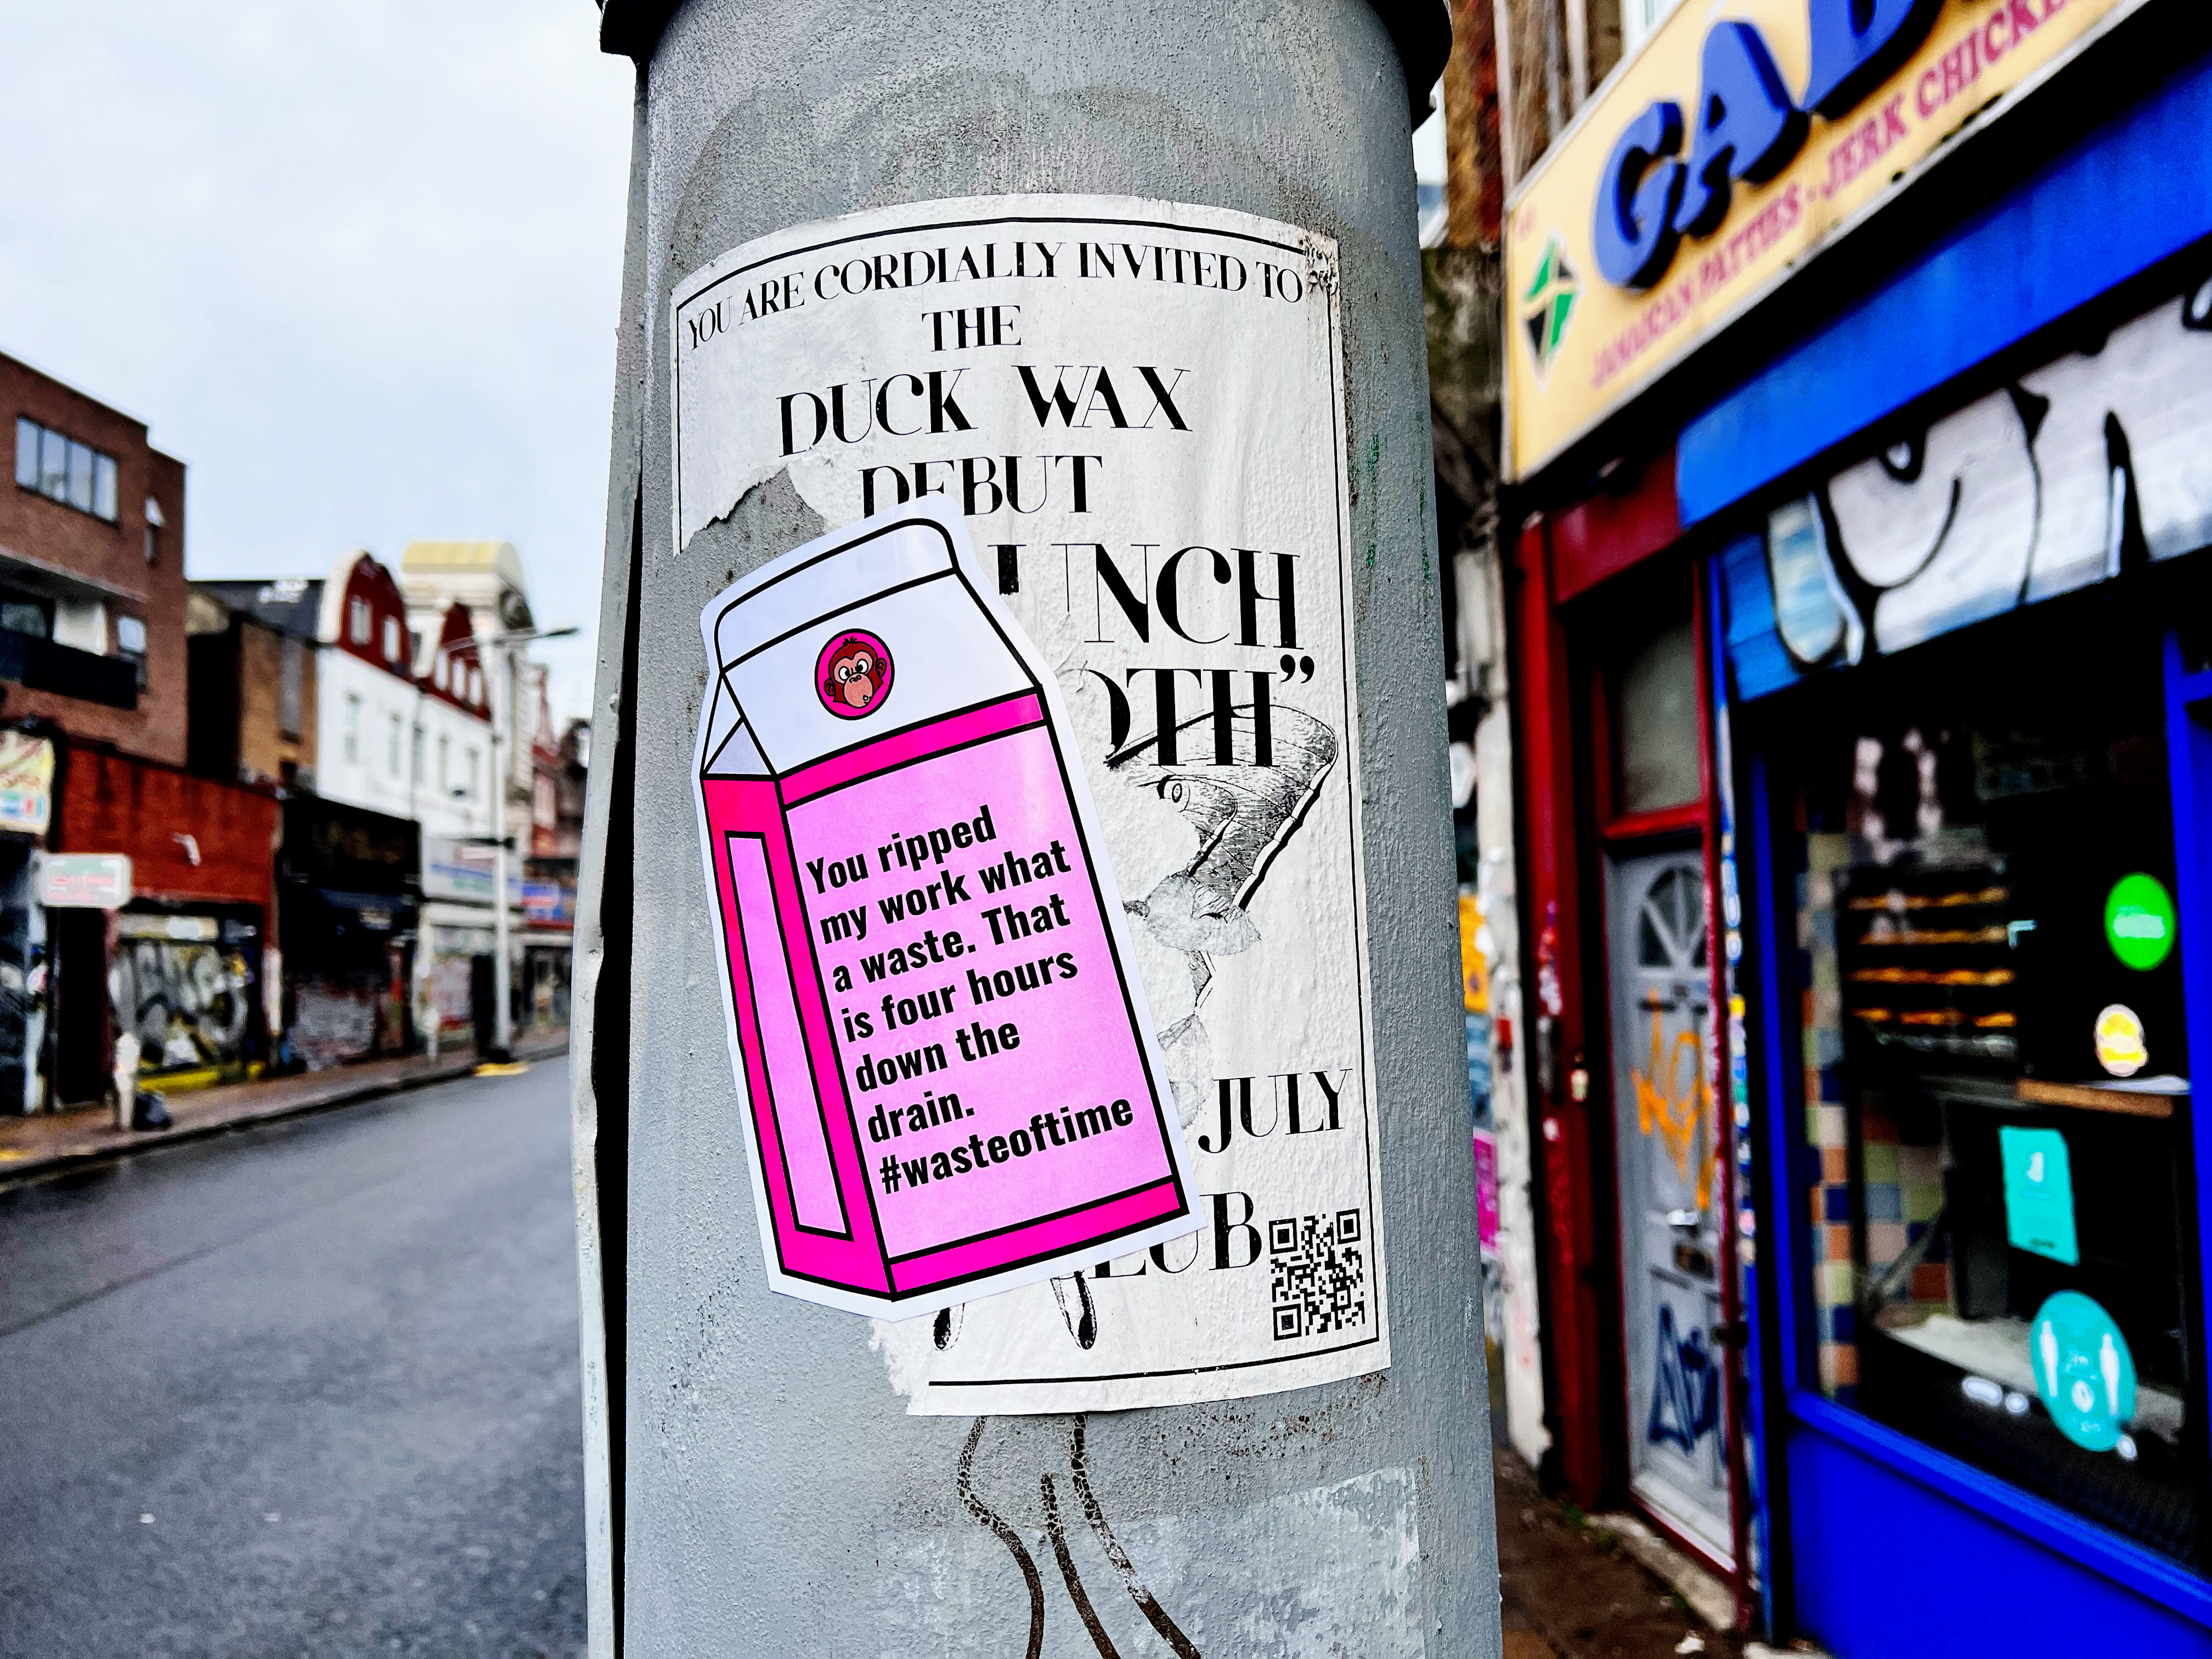 YOU ARE CORDIALLY INVITED TO
THE
DUCK WAX
DEBUT
JULY
You ripped
my work what
a waste. That
is four hours
down the
drain.
#wasteoftime
JAMAICAN PATTIES - JERK CHICKEN